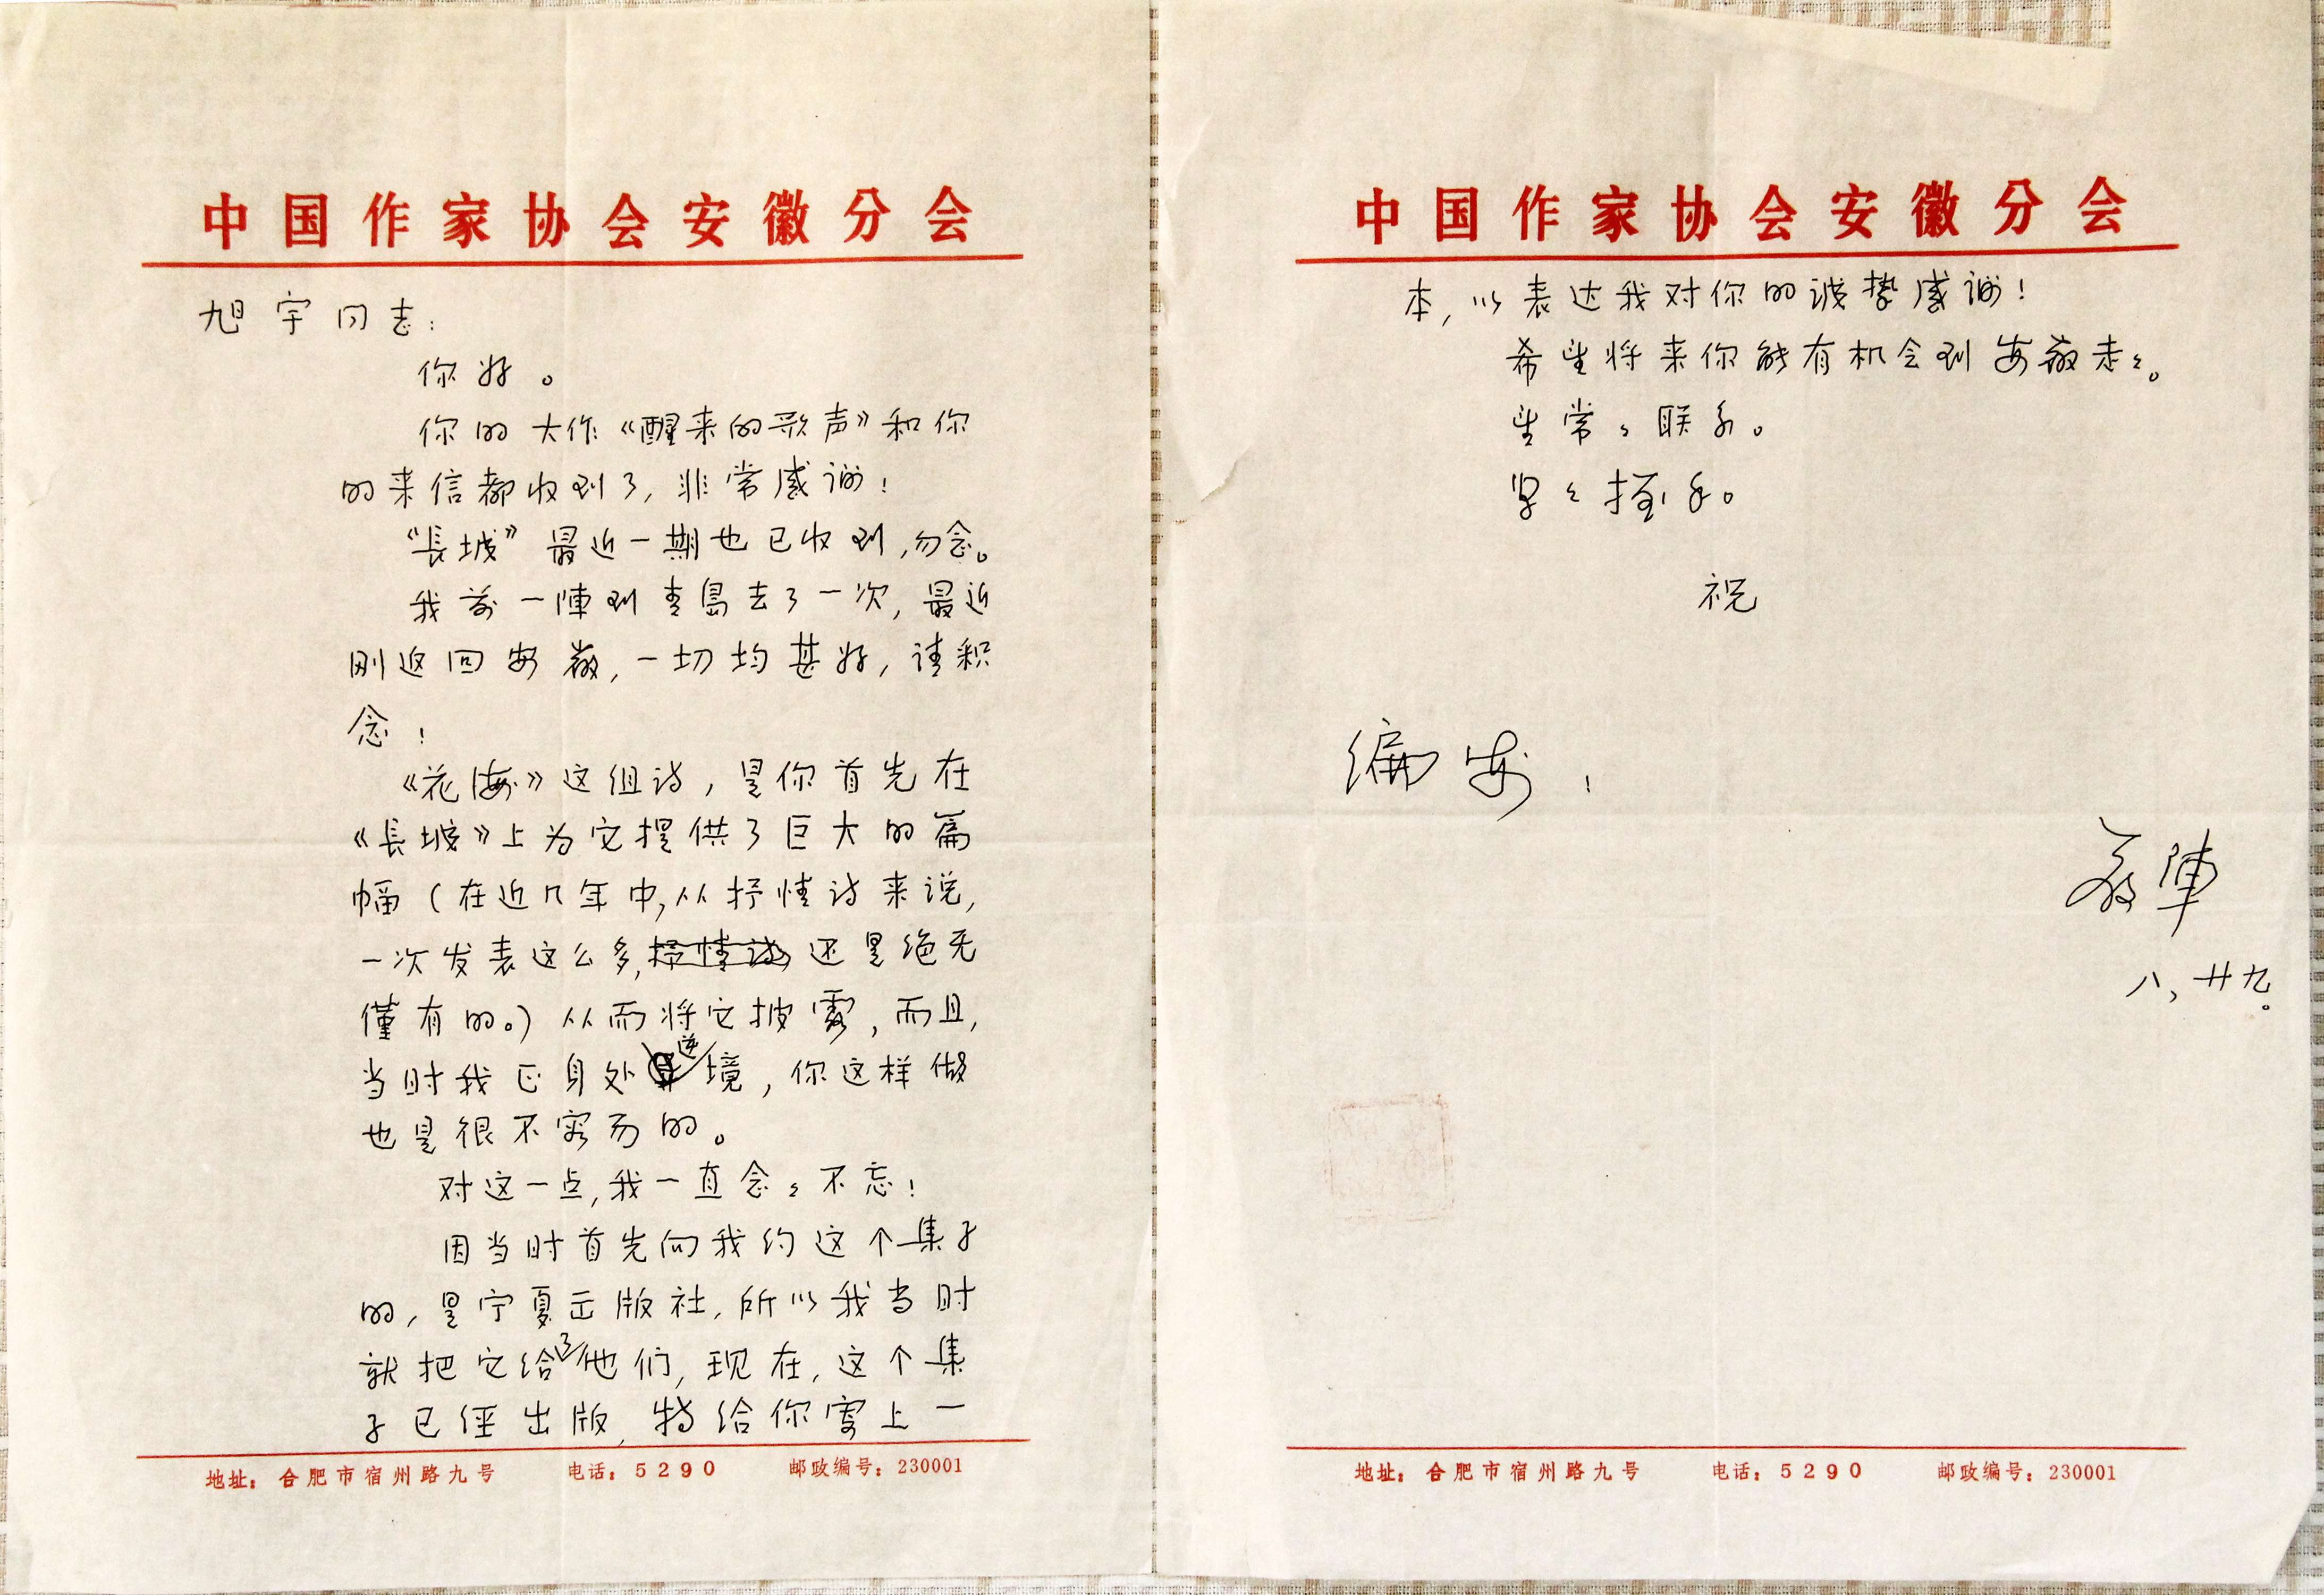 中国作家协会安徽分会
旭宇同志：
你好。
你的大作《醒来的歌声》和你
的来信都收到了，非常感谢！
《長城》最近一期也已收到，勿念。
我前一陣到青島去了一次，最近
刚返回安徽，一切均甚好，请釈
念！
《花海》这组诗，是你首先在
《長城》上为它提供了巨大的篇
幅（在近几年中，从抒情诗来说，
一次发表这么多，还是绝无
僅有的。）从而将它披露，而且，
当时我正身处逆境，你这样做
也是很不容易的。
对这一点，我一直念々不忘！
因当时首先向我约这个集子
的，是宁夏出版社，所以我当时
就把它给了他们，现在，这个集
子已经出版，特给你寄上一
地址：合肥市宿州路九号 电话：5290 邮政编号：230001
中国作家协会安徽分会
本，以表达我对你的诚挚感谢！
希望将来你能有机会到安徽走々。
望常々联系。
紧々握手。
祝
编安！
严陣
八、廿九。
地址：合肥市宿州路九号 电话：5290 邮政编号：230001